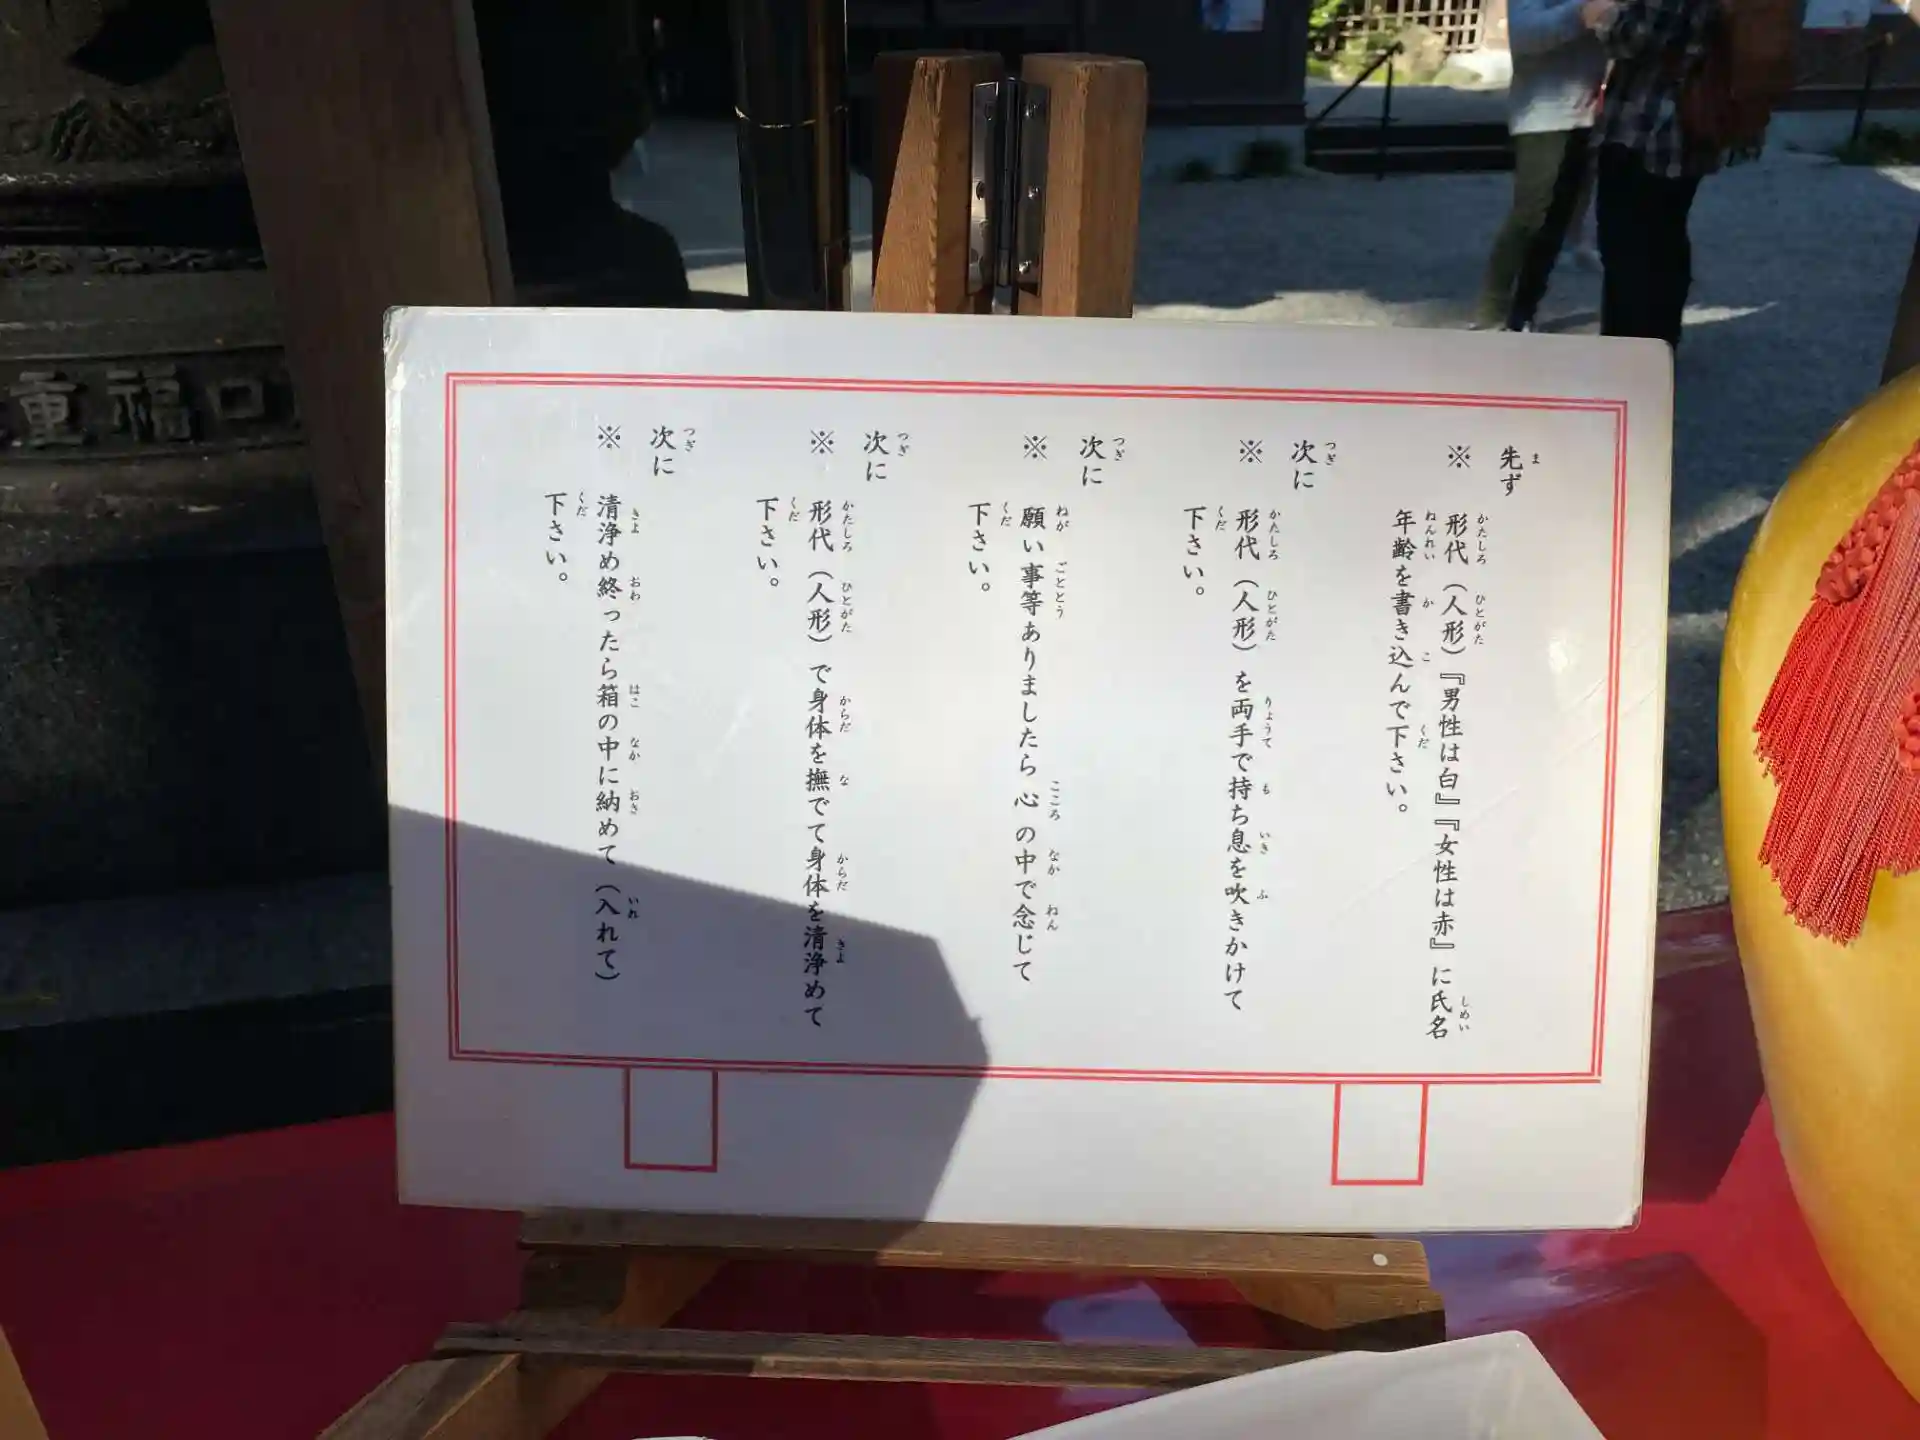 先ず
※ 形代（人形）『男性は白』『女性は赤』に氏名
年齢を書き込んで下さい。
次に
※ 形代（人形）を両手で持ち息を吹きかけて
下さい。
次に
※ 願い事等ありましたら心の中で念じて
下さい。
次に
※ 形代（人形）で身体を撫でて身体を清浄めて
下さい。
次に
※ 清浄め終ったら箱の中に納めて（入れて）
下さい。
重福口